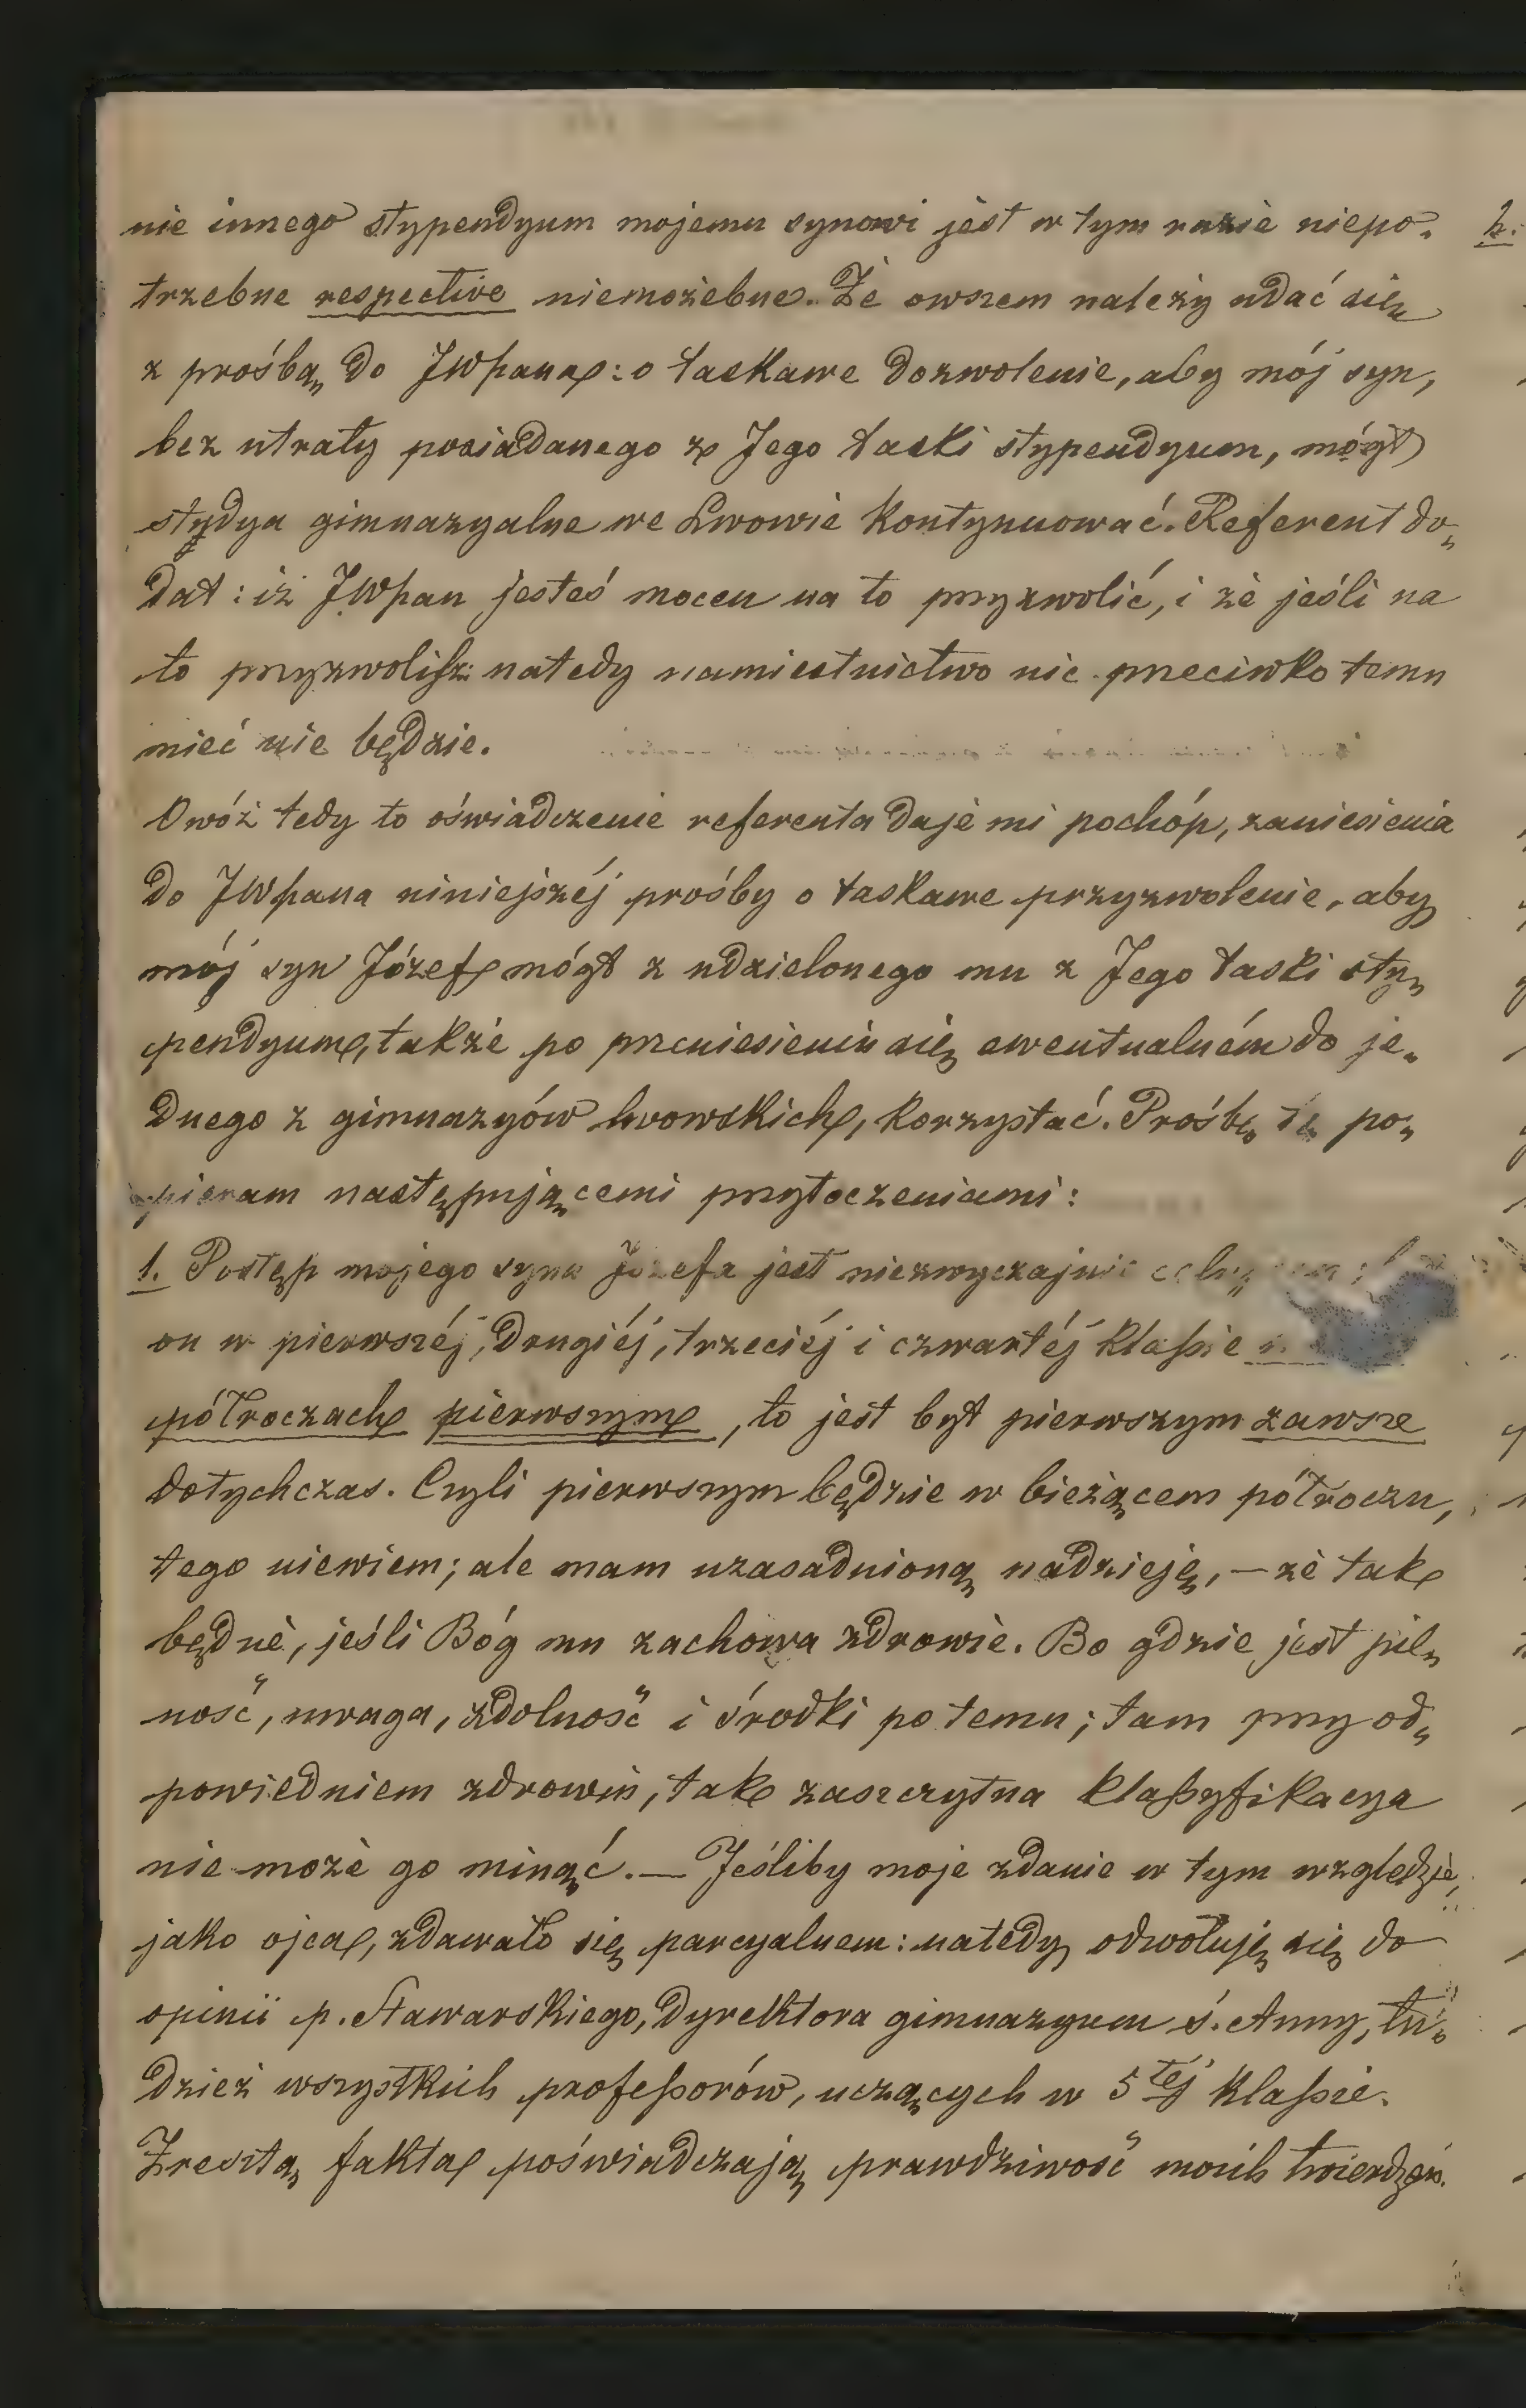 nie innego stypendyum mojemu synowi jest w tym razie niepo-
trzebne respective niemożebne. Że owszem należy udać się
z prośbą do JWPana: o łaskawe dozwolenie, aby mój syn,
bez utraty posiadanego z Jego łaski stypendyum, mógł
studya gimnazyalne we Lwowie kontynuować. Referent do-
dał: iż JWPan jesteś mocen na to przyzwolić, i że jeśli na
to przyzwolisz: natedy namiestnictwo nic przeciwko temu
mieć nie będzie.
Owóż tedy to oświadczenie referenta daje mi pochóp, zaniesienia
do JWPana niniejszéj prośby o łaskawe przyzwolenie, aby
mój syn Józef mógł z udzielonego mu z Jego łaski sty-
pendyum, także po przeniesieniu się ewentualném do je-
dnego z gimnazyów lwowskich, korzystać. Prośbę tę po-
pieram następującemi przytoczeniami:
1. Postęp mojego syna Józefa jest niezwyczajnie
on w pierwszéj, drugiéj, trzeciéj i czwartéj klassie
półroczach pierwszym, to jest był pierwszym zawsze
dotychczas. Czyli pierwszym będzie w bieżącem półroczu,
tego niewiem; ale mam uzasadnioną nadzieję, — że tak
będzie, jeśli Bóg mu zachowa zdrowie. Bo gdzie jest pil-
ność, uwaga, zdolność i środki po temu; tam przy od-
powiedniem zdrowiu, tak zaszczytna klassyfikacya
nie może go minąć. — Jeśliby moje zdanie w tym względzie,
jako ojca, zdawało się parcyalnem: natedy odwołuję się do
opinii p. Stawarskiego, dyrektora gimnazyum ś. Anny, tu-
dzież wszystkich professorów, uczących w 5téj klassie.
Zresztą fakta poświadczają prawdziwość moich twierdzeń.
2.